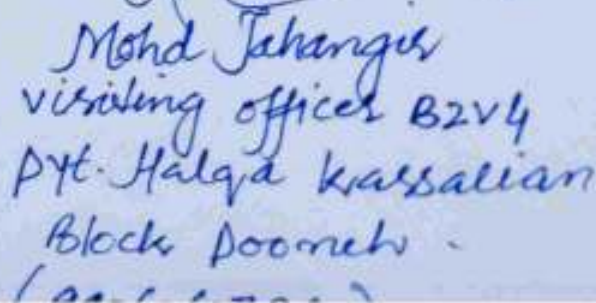 Mohd Jahangir
visiting officer B2V4
Pyt. Halqa Krassalian
Block Doomeh.